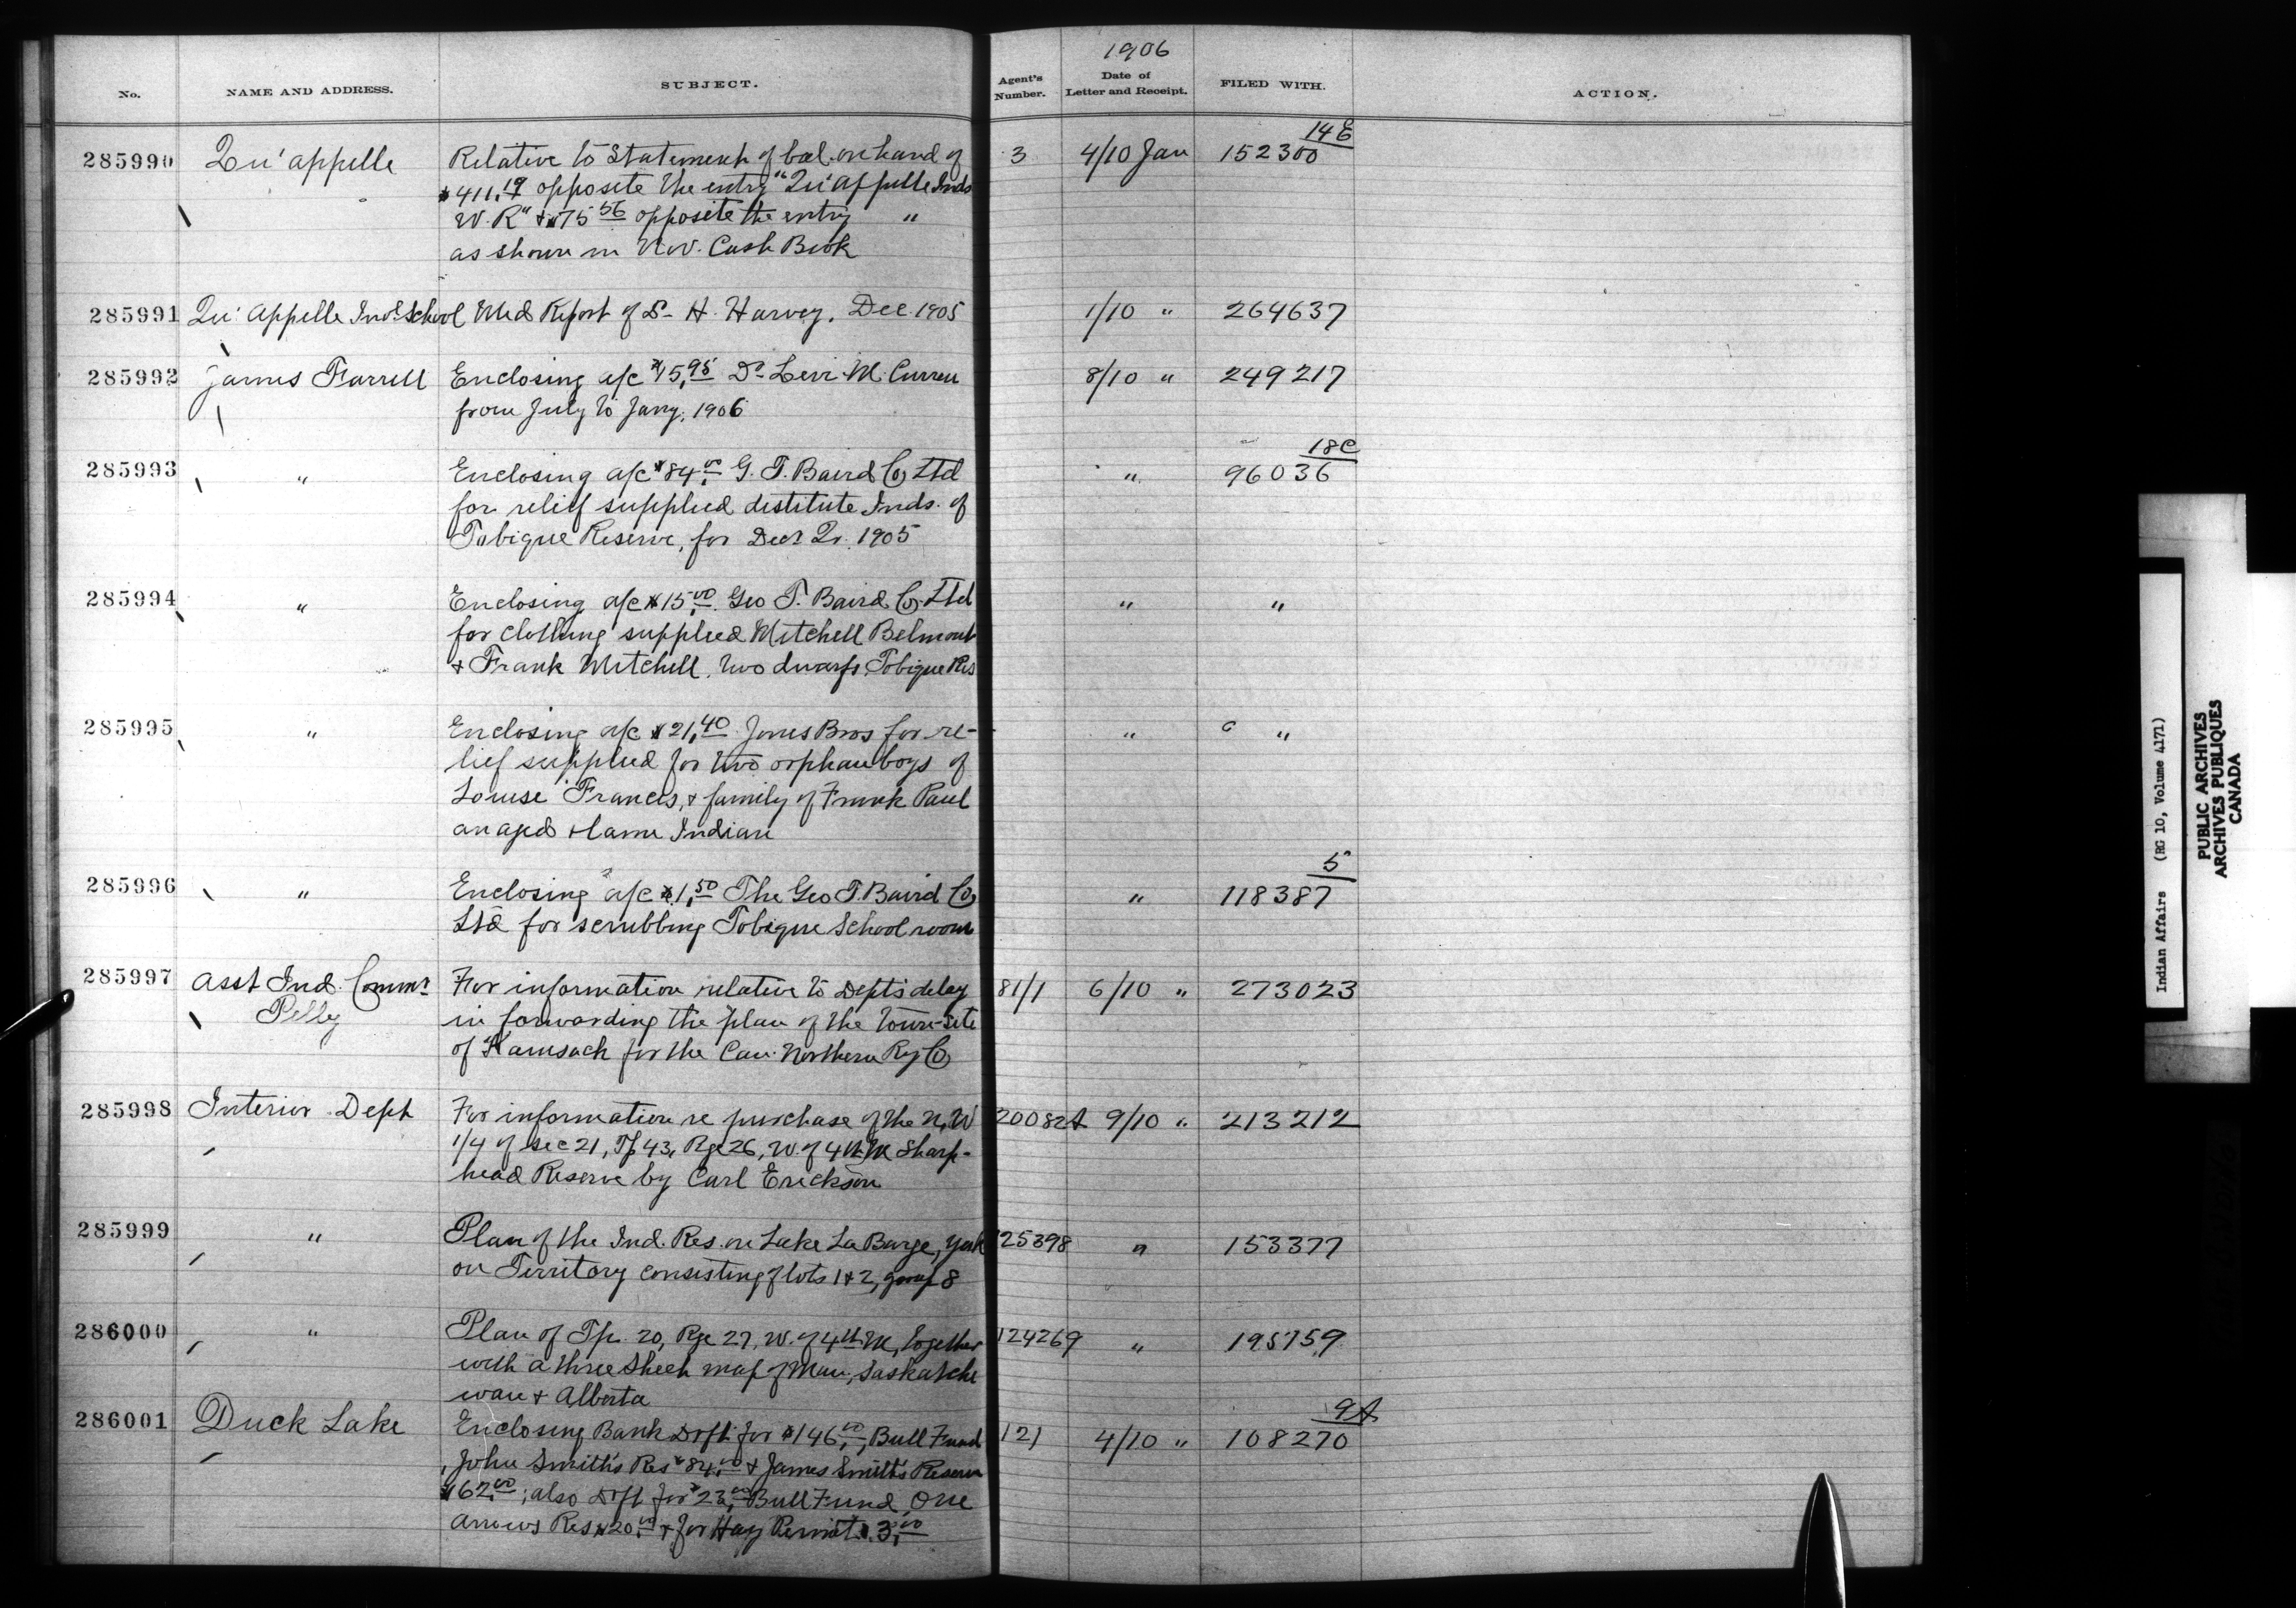 1906
No. NAME AND ADDRESS. SUBJECT. Agent's Number. Date of Letter and Receipt. FILED WITH. ACTION.
285990 Qu'appelle Relative to Statement of bal. on hand of 3 4/10 Jan 152300 14E
$411.19 opposite the entry "Qu'Appelle Inds
W. R" & $75 56 opposite the entry "
as shown in Nov. Cash Book
285991 Qu'Appelle Indl School Med Report of Dr H. Harvey. Dec 1905 1/10 " 264637
285992 James Farrell Enclosing a/c $15.95 Dr Levi M. Curren 8/10 " 249217
from July to Jany. 1906
285993 " Enclosing a/c $84.00 G. T. Baird Co Ltd " 96036 18C
for relief supplied destitute Inds. of
Tobique Reserve, for Decr Qr. 1905
285994 " Enclosing a/c $15.00 Geo T. Baird Co. Ltd " "
for clothing supplied Mitchell Belmont
& Frank Mitchell, two dwarfs, Tobique Res
285995 " Enclosing a/c $21.40 Jones Bros for re- " "
lief supplied for two orphan boys of
Louise Francis, & family of Frank Paul
an aged & lame Indian
285996 " Enclosing a/c $1.50 The Geo T. Baird Co " 118387 5
Ltd for scrubbing Tobique School room
285997 Asst Ind. Commr For information relative to Dept's delay 81/1 6/10 " 273023
Pelly in forwarding the plan of the town-site
of Kamsack for the Can. Northern Ry Co
285998 Interior Dept For information re purchase of the N.W 20082A 9/10 " 213212
1/4 of sec 21, Tp 43, Rge 26, W. of 4th M Sharp-
head Reserve by Carl Erickson
285999 " Plan of the Ind. Res. on Lake La Barge, Yuk 125398 " 153377
on Territory consisting of lots 1 & 2, group 8
286000 " Plan of Tp. 20, Rge 27, W. of 4th M, together 124269 " 195759
with a three sheet map of Man, Saskatche
wan & Alberta
286001 Duck Lake Enclosing Bank Drft for $146.00, Bull Fund 121 4/10 " 108270 9A
John Smith's Res $84.00 & James Smith's Reserve
$62.00; also Drft for $23.00 Bull Fund One
Arrows Res $20.00 & for Hay Permit $3.00
Indian Affairs (RG 10, Volume 4171)
PUBLIC ARCHIVES
ARCHIVES PUBLIQUES
CANADA